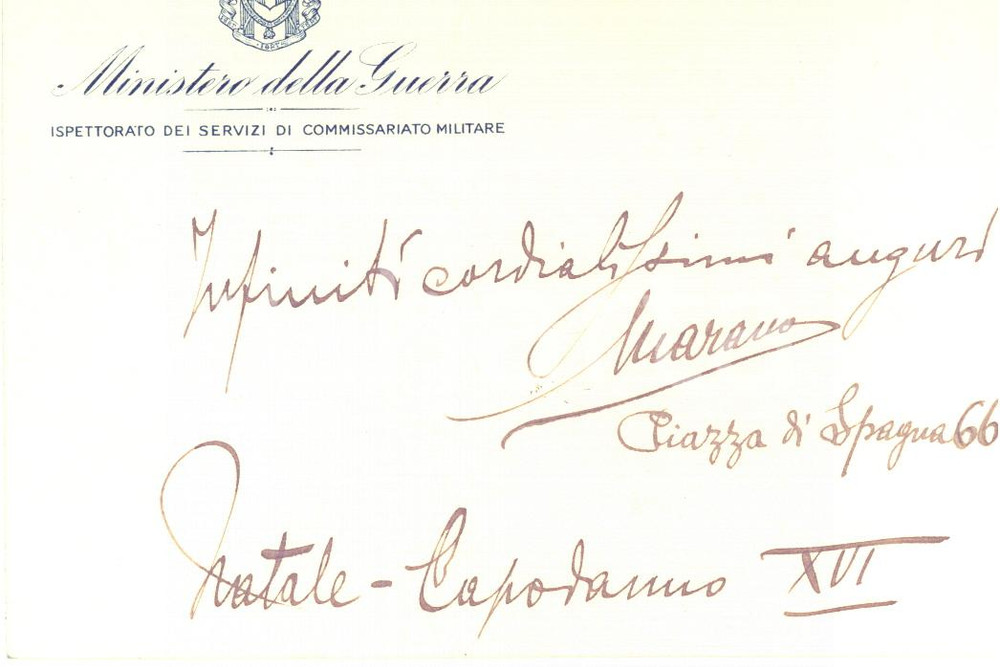 Ministero della Guerra
ISPETTORATO DEI SERVIZI DI COMMISSARIATO MILITARE
Infiniti cordialissimi auguri
Marano
Piazza di Spagna 66
Natale - Capodanno XVI